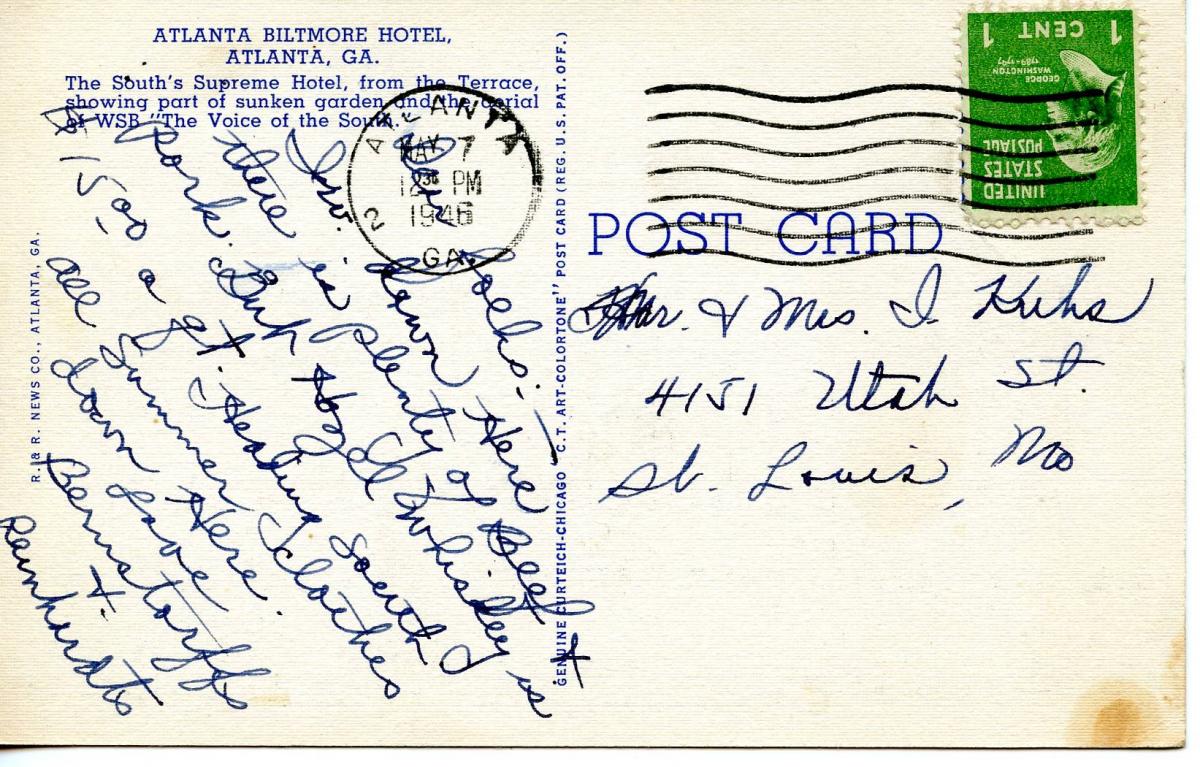 ATLANTA BILTMORE HOTEL,
ATLANTA, GA.
The South's Supreme Hotel, from the Terrace,
showing part of sunken garden and the aerial
of WSB "The Voice of the South."
Dear Folks:—
down Here
there is plenty of Beef +
pork. But Whiskey is
$15 00 a qt. Heading South
all Summer clothes
down Here.
Love
Bernstorffs
+
Reinhardts
ATLANTA
2
MAY 7
12 30 PM
1946
GA.
R. & R. NEWS CO., ATLANTA, GA.
GENUINE CURTEICH-CHICAGO "C.T. ART-COLORTONE" POST CARD (REG. U.S. PAT. OFF.)
UNITED
STATES
POSTAGE
GEORGE
WASHINGTON
1789-1797
1 CENT 1
POST CARD
Mr. & Mrs. I. Kuhs
4151 Utah St.
St. Louis, Mo